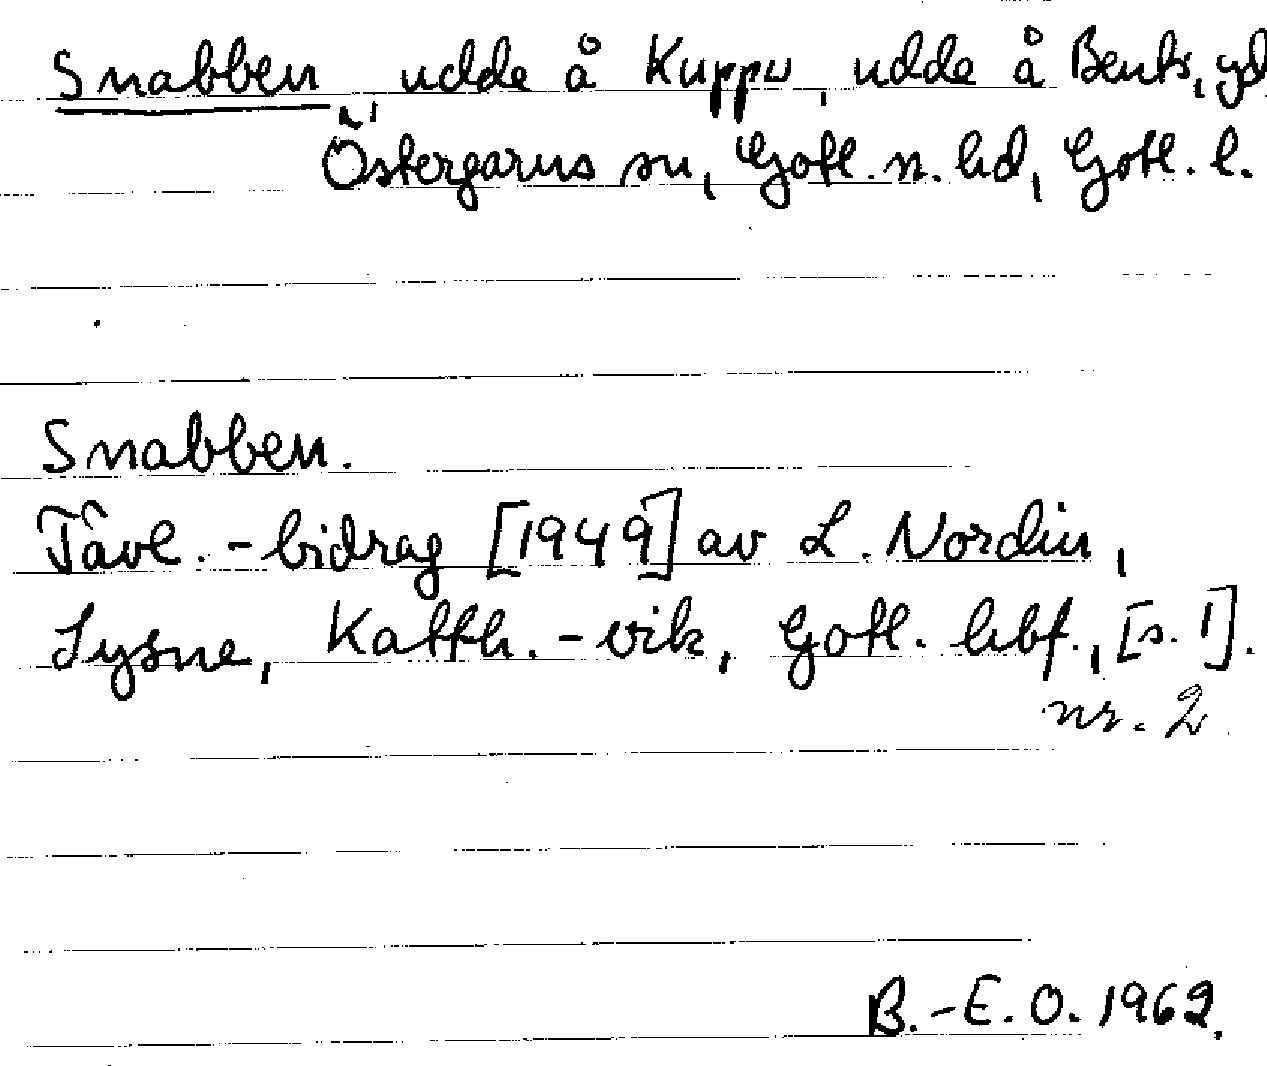 Snabben, udde å Kuppu, udde å Bents, yd
Östergarns sn, Gotl. n. hd, Gotl. l.
Snabben.
Tävl.-bidrag [1949] av L. Nordin,
Sysne, Katth.-vik, Gotl. hbf., [s. 1].
nr. 2
B.-E. O. 1962.